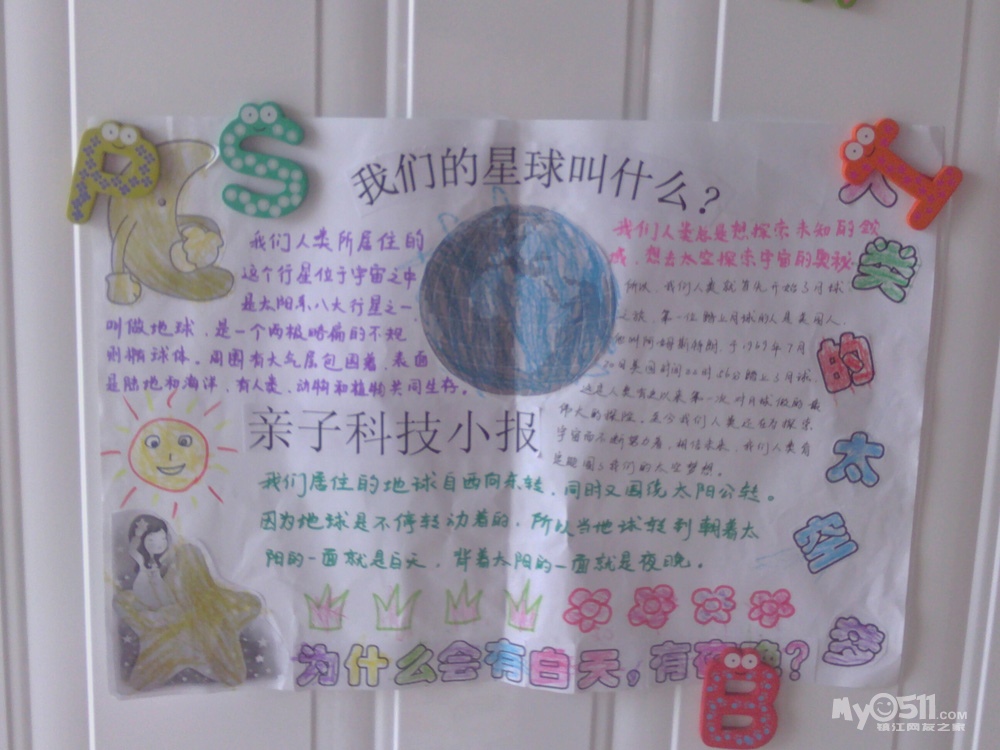 我们的星球叫什么?
我们人类所居住的
这个行星位于宇宙之中
是太阳系八大行星之一
叫做地球,是一个两极略扁的不规
则椭球体。周围有大气层包围着,表面
是陆地和海洋,有人类、动物和植物共同生存。
我们人类总是想探索未知的领
域,想去太空探索宇宙的奥秘
所以,我们人类就首先开始了月球
之旅,第一位踏上月球的人是美国人,
他叫阿姆斯特朗,于1969年7月
20日美国时间22时56分踏上了月球
这是人类有史以来第一次对月球做的最
伟大的探险。至今我们人类还在为探索
宇宙而不断努力着,相信未来,我们人类肯
定能圆了我们的太空梦想。
人类的太空梦
亲子科技小报
我们居住的地球自西向东转,同时又围绕太阳公转。
因为地球是不停转动着的,所以当地球转到朝着太
阳的一面就是白天,背着太阳的一面就是夜晚。
为什么会有白天,有夜晚?
P
S
I
B
My0511.COM
镇江网友之家